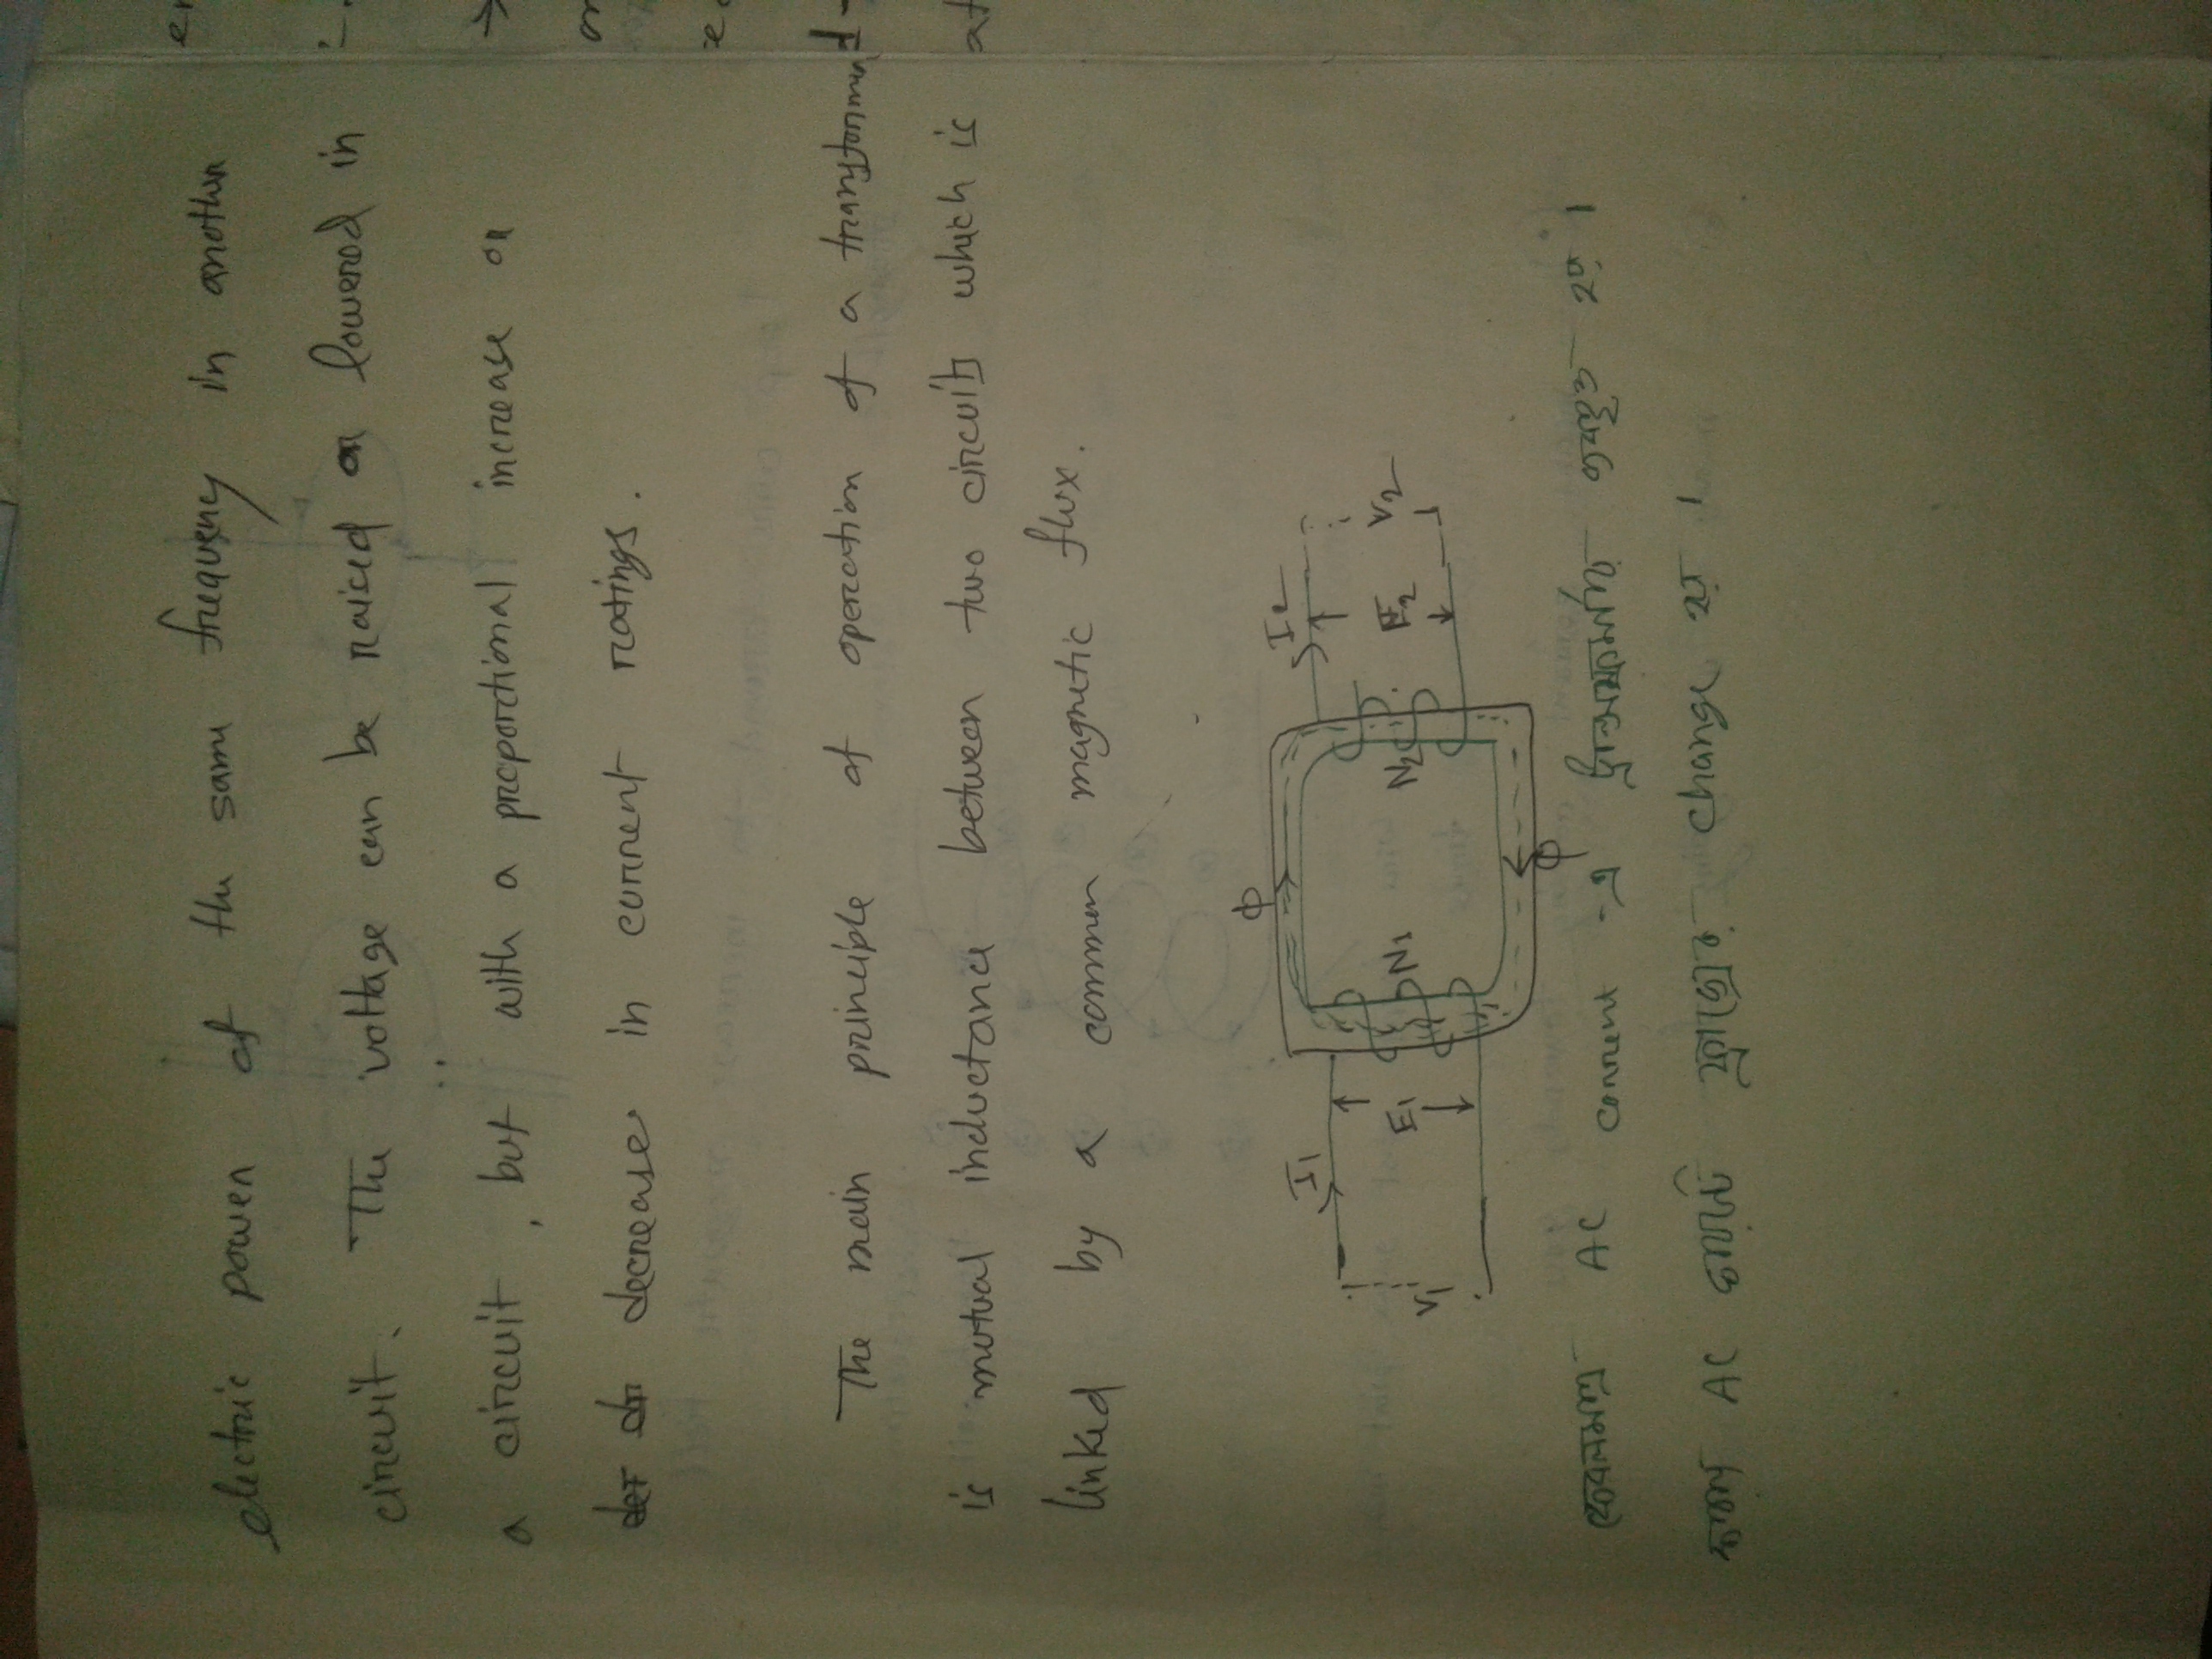 electric power of the same frequency in another
circuit. The voltage can be raised or lowered in
a circuit, but with a proportional increase or
decrease in current ratings.
The main principle of operation of a transformer
is mutual inductance between two circuits which is
linked by a common magnetic flux.
Φ
I1
I2
V1
E1
N1
N2
E2
V2
Φ
কেবলমাত্র AC current -এ ট্রান্সফরমার ব্যবহৃত হয় ।
কারণ AC তে ফ্লাক্সের change হয় ।